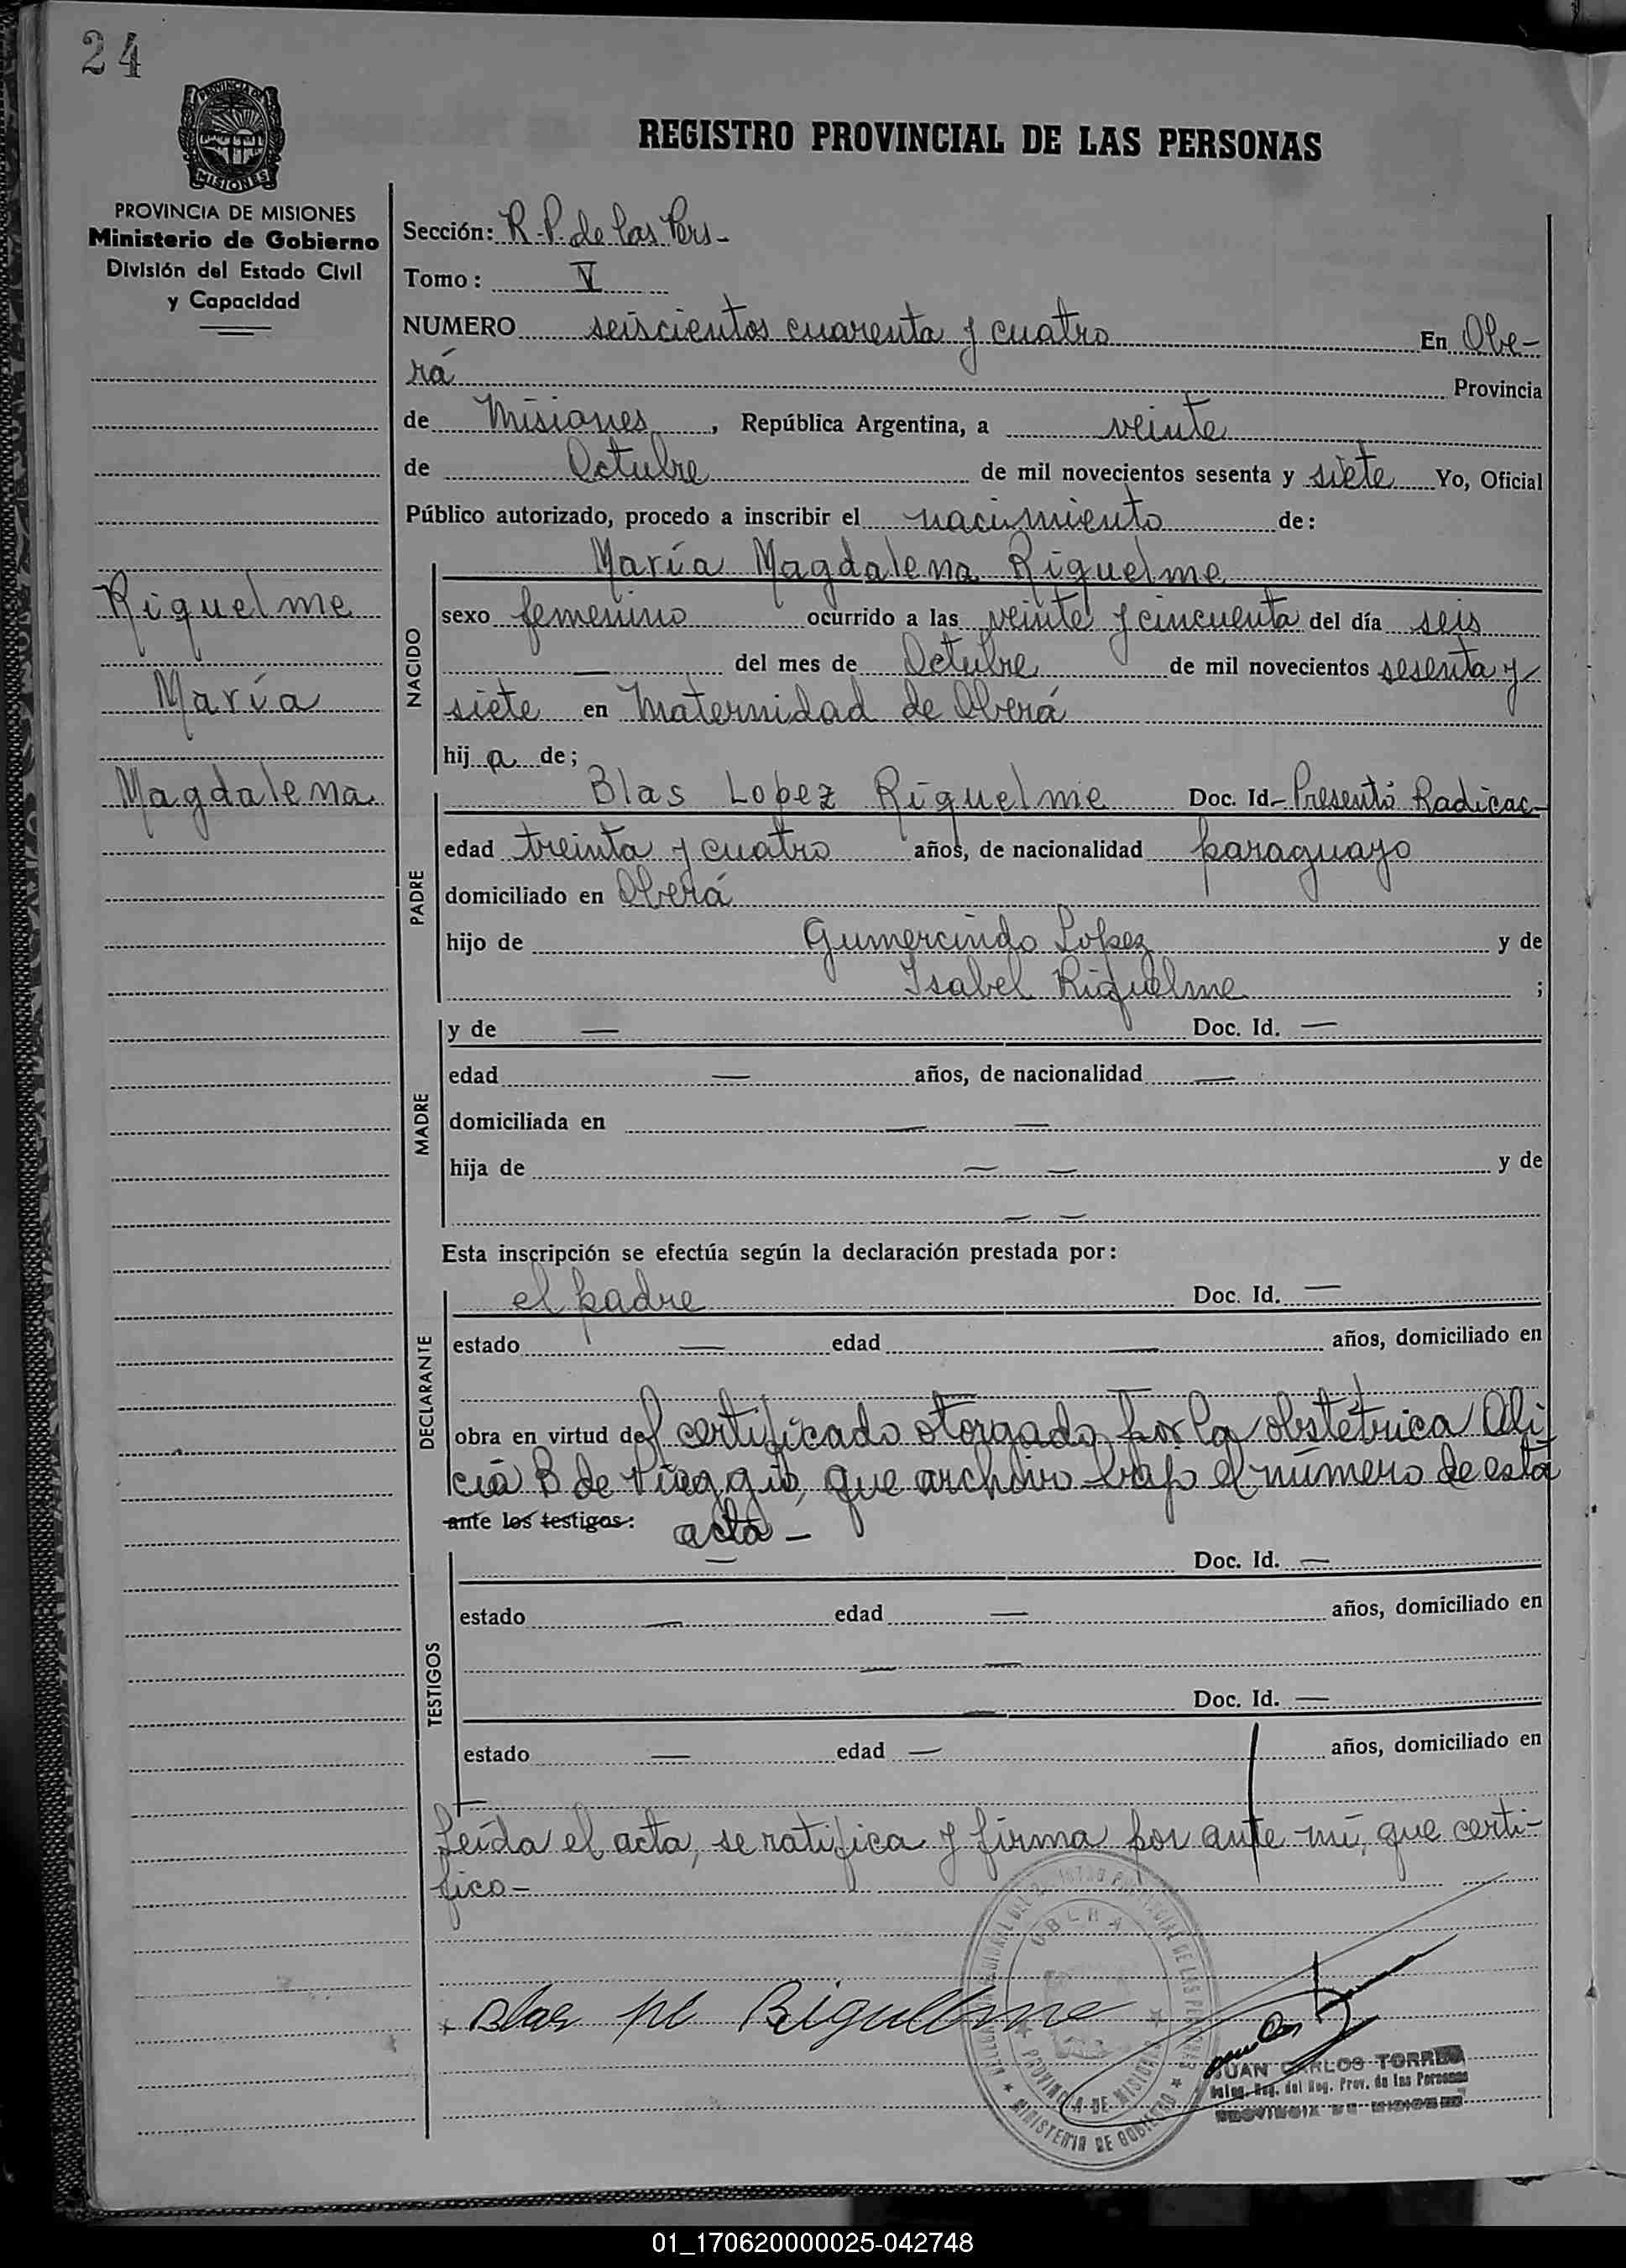 24
PROVINCIA DE
MISIONES
REGISTRO PROVINCIAL DE LAS PERSONAS
PROVINCIA DE MISIONES
Ministerio de Gobierno
División del Estado Civil
y Capacidad
Sección: R.P. de las Pers-
Tomo: V
NUMERO seiscientos cuarenta y cuatro En Obe-
rá Provincia
de Misiones, República Argentina, a veinte
de Octubre de mil novecientos sesenta y siete Yo, Oficial
Público autorizado, procedo a inscribir el nacimiento de:
Riquelme
María
Magdalena
NACIDO
María Magdalena Riquelme
sexo femenino ocurrido a las veinte y cincuenta del día seis
— del mes de Octubre de mil novecientos sesenta y
siete en Maternidad de Oberá
hij a de;
PADRE
Blas Lopez Riquelme Doc. Id- Presentó Radicac-
edad treinta y cuatro años, de nacionalidad paraguayo
domiciliado en Oberá
hijo de Gumercindo Lopez y de
Isabel Riquelme ;
MADRE
y de — Doc. Id. —
edad — años, de nacionalidad —
domiciliada en — —
hija de — — y de
— —
Esta inscripción se efectúa según la declaración prestada por:
DECLARANTE
el padre Doc. Id. —
estado — edad — años, domiciliado en
— —
obra en virtud del certificado otorgado por la obstétrica Ali
cia B de Viaggio, que archivo bajo el número de esta
ante los testigos: acta —
TESTIGOS
— Doc. Id. —
estado — edad — años, domiciliado en
— —
— Doc. Id. —
estado — edad — años, domiciliado en
Leída el acta, se ratifica y firma por ante mí, que certi-
fico-
OBERA
PROVINCIA DE MISIONES
MINISTERIO DE GOBIERNO
Blas Riquelme
JUAN CARLOS TORRES
Deleg. Reg. del Reg. Prov. de las Personas
PROVINCIA DE MISIONES
01_170620000025-042748